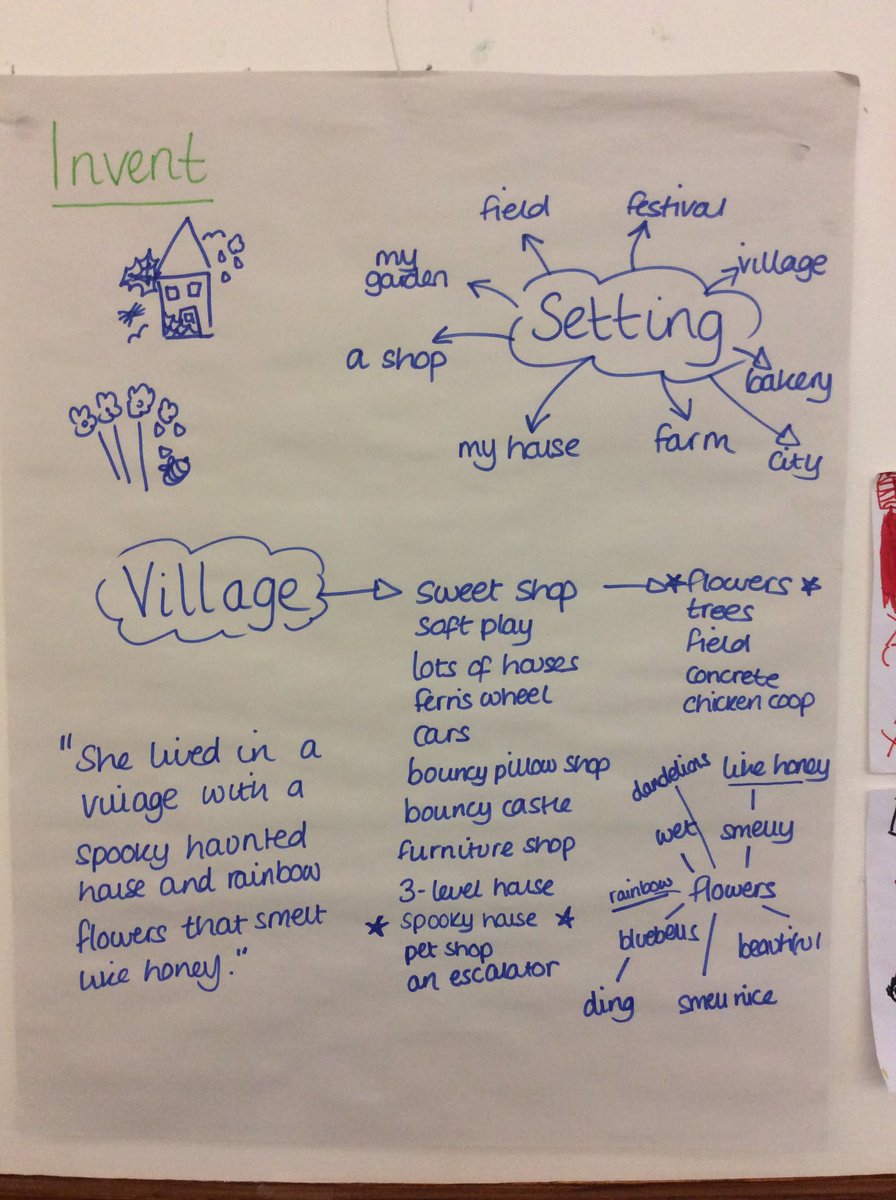 Invent
field
festival
my
garden
village
Setting
a shop
bakery
my house
farm
city
Village
sweet shop
soft play
lots of houses
ferris wheel
cars
bouncy pillow shop
bouncy castle
furniture shop
3-level house
* spooky house *
pet shop
an escalator
*flowers *
trees
field
concrete
chicken coop
dandelions
like honey
wet
smelly
rainbow
flowers
bluebells
beautiful
ding
smell nice
"She lived in a
village with a
spooky haunted
house and rainbow
flowers that smelt
like honey."